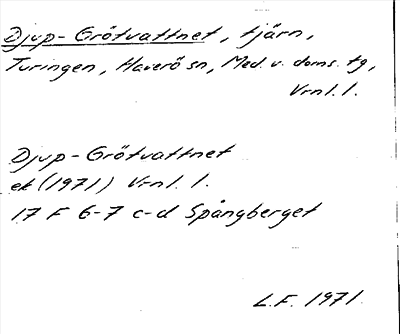 Djup-Grötvattnet, tjärn,
Turingen, Haverö sn, Med. v. doms. tg,
Vrnl. l.
Djup-Grötvattnet
ek (1971) Vrnl. l.
17 F 6-7 c-d Spångberget
L.F. 1971